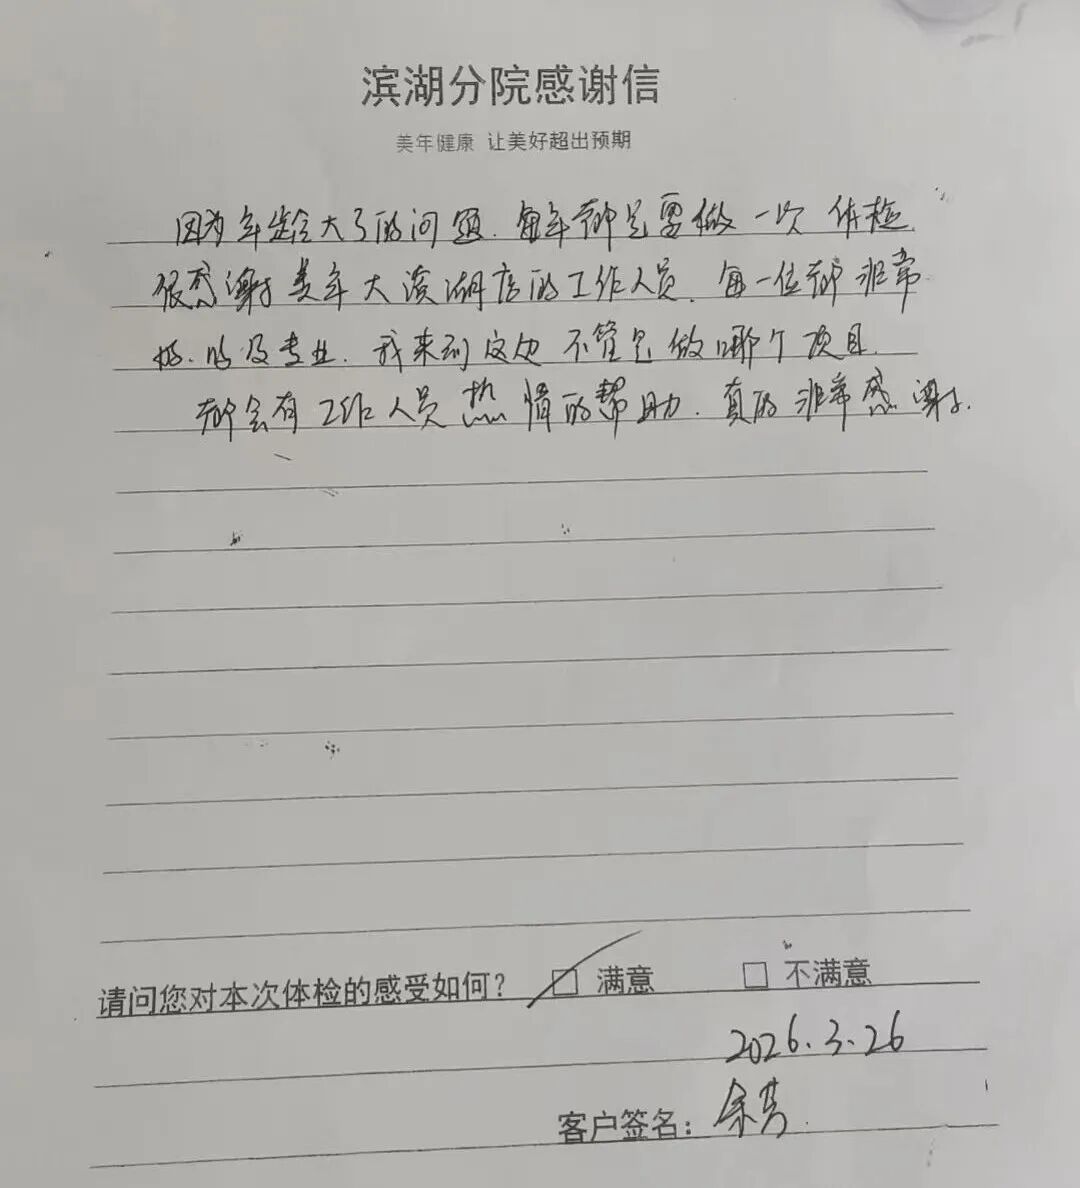 滨湖分院感谢信
美年健康 让美好超出预期
因为年龄大了的问题.每年都是要做一次体检.
很感谢美年大滨湖店的工作人员.每一位都非常
好.的及专业.我来到这边不管是做哪个项目.
都会有工作人员热情的帮助.真的非常感谢.
请问您对本次体检的感受如何? 满意 不满意
2026.3.26
客户签名: 余